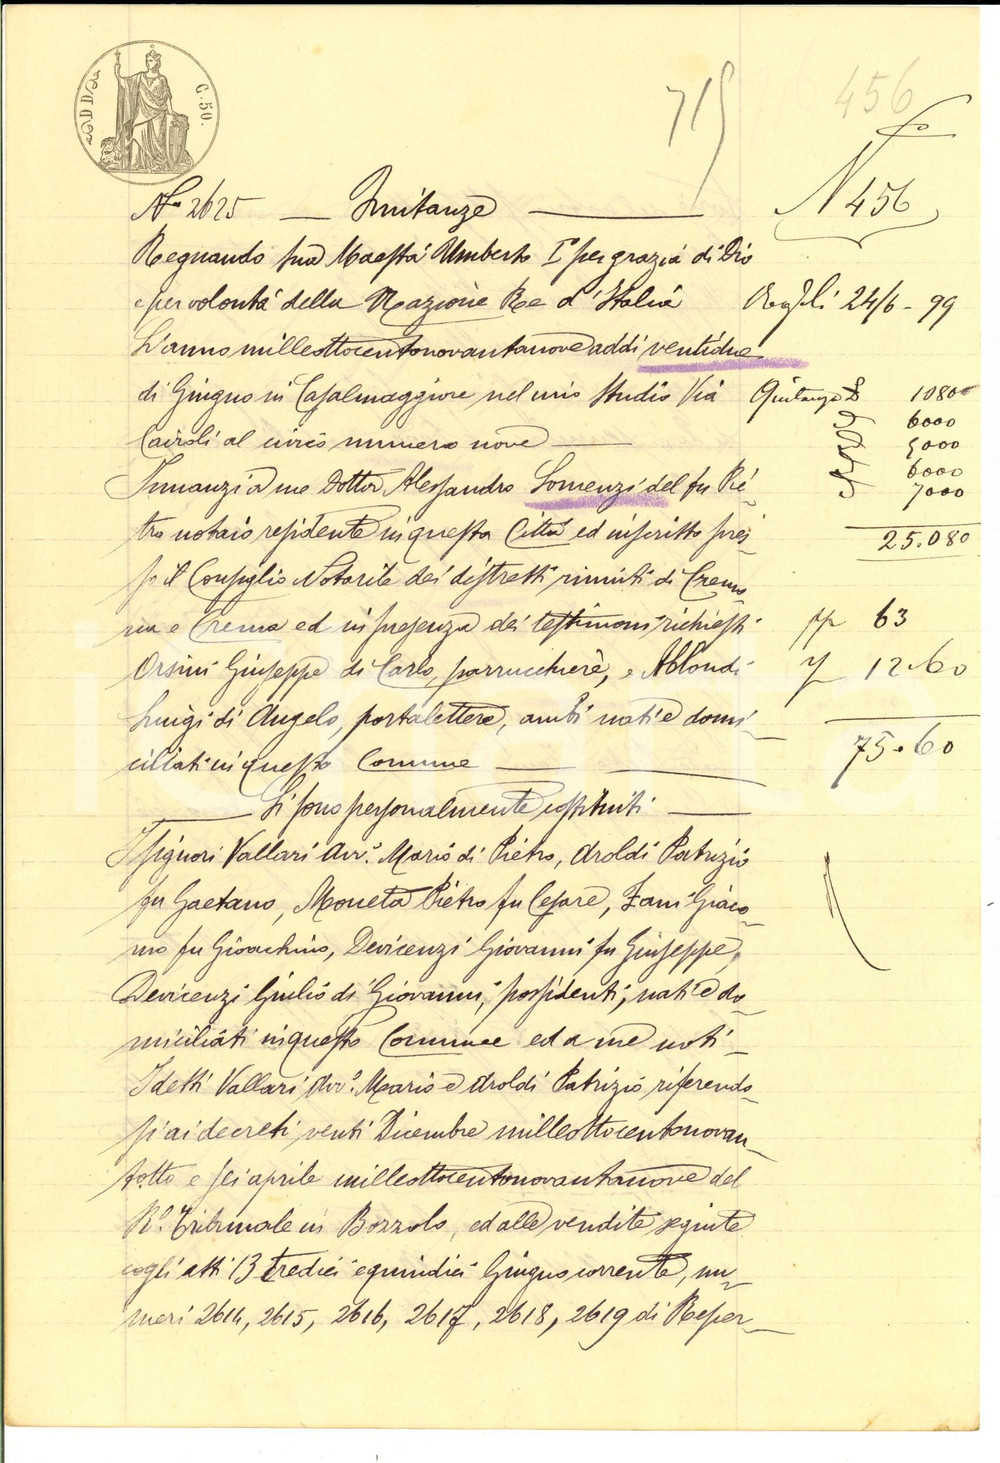 C. 50.
719
456
N 456
No. 2625 — Quitanza —
Regnando Sua Maestà Umberto I° per grazia di Dio
e per volontà della Nazione Re d'Italia
L'anno milleottocentonovantanove addì ventidue
di Giugno in Casalmaggiore nel mio Studio Via
Cairoli al civico numero nove —
Innanzi a me Dottor Alessandro Somenzi del fu Pie-
tro notaio residente in questa Città ed inscritto pres-
so il Consiglio Notarile dei distretti riuniti di Cremo
na e Crema ed in presenza dei testimoni richiesti
Orsini Giuseppe di Carlo, parrucchiere, e Ablondi
Luigi di Angelo, portalettere, ambi nati e domi-
ciliati in questo Comune —
— Si sono personalmente costituiti —
I signori Vallari Avv.° Mario di Pietro, Aroldi Patrizio
fu Gaetano, Moneta Pietro fu Cesare, Zani Giaco-
mo fu Gioachino, Devicenzi Giovanni fu Giuseppe,
Devicenzi Giulio di Giovanni, possidenti, nati e do-
miciliati in questo Comune ed a me noti —
I detti Vallari Avv.° Mario e Aroldi Patrizio riferendo-
si ai decreti venti Dicembre milleottocentonovan-
totto e sei aprile milleottocentonovantanove del
R.° Tribunale in Bozzolo, ed alle vendite seguite
cogli atti 13 tredici e quindici Giugno corrente, nu-
meri 2614, 2615, 2616, 2617, 2618, 2619 di Reper-
24/6 - 99
Quitanza £ 1080
6000
5000
6000
7000
25.080
63
12.60
75.60